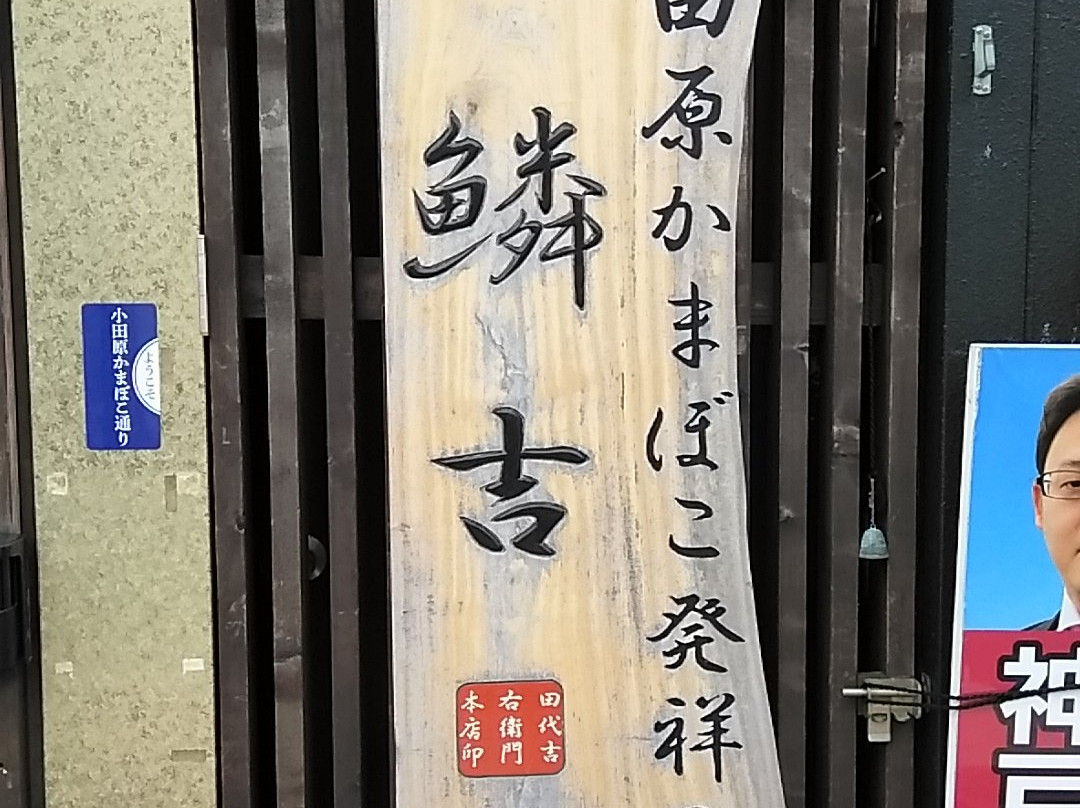 田原かまぼこ発祥の
鱗吉
田代吉
右衛門
本店印
ようこそ
小田原かまぼこ通り
神